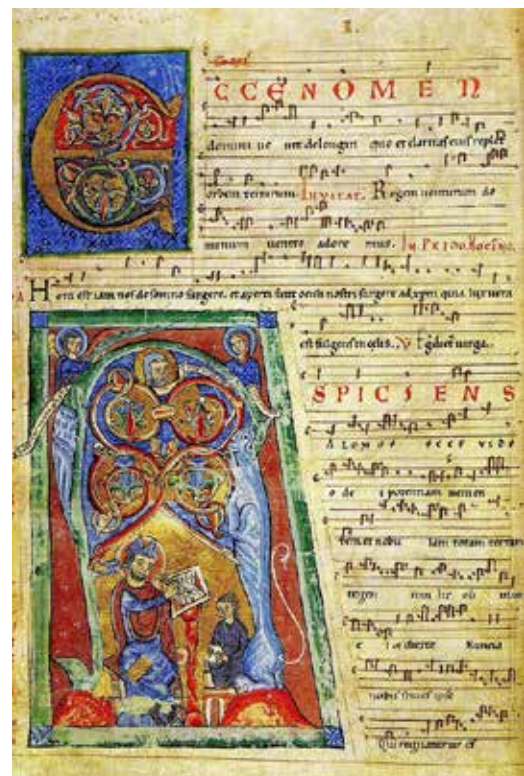 I.
ECCE NOMEN
domini ue nit de longin quo et claritas eius replet
orbem terrarum. INVITAT. Regem uenturum do
minum uenite adore mus. IN PRIMO
Hora est iam nos de somno surgere. et aperti sunt oculi nostri surgere ad xpm quia lux uera
est fulgens in celis. V uirga.
ASPICIENS
A LONGE ECCE VIDE
o de i potentiam uenien
tem et nebu lam totam terram
tegen tem Ite ob uiam
e i et dicite Nuncia
nobis si tu es ipse
Qui regnaturus es